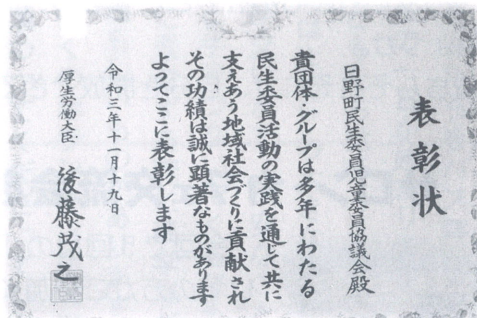 表彰状
日野町民生委員児童委員協議会殿
貴団体・グループは多年にわたる
民生委員活動の実践を通じて共に
支えあう地域社会づくりに貢献され
その功績は誠に顕著なものがあります
よってここに表彰します
令和三年十一月十九日
厚生労働大臣 後藤茂之